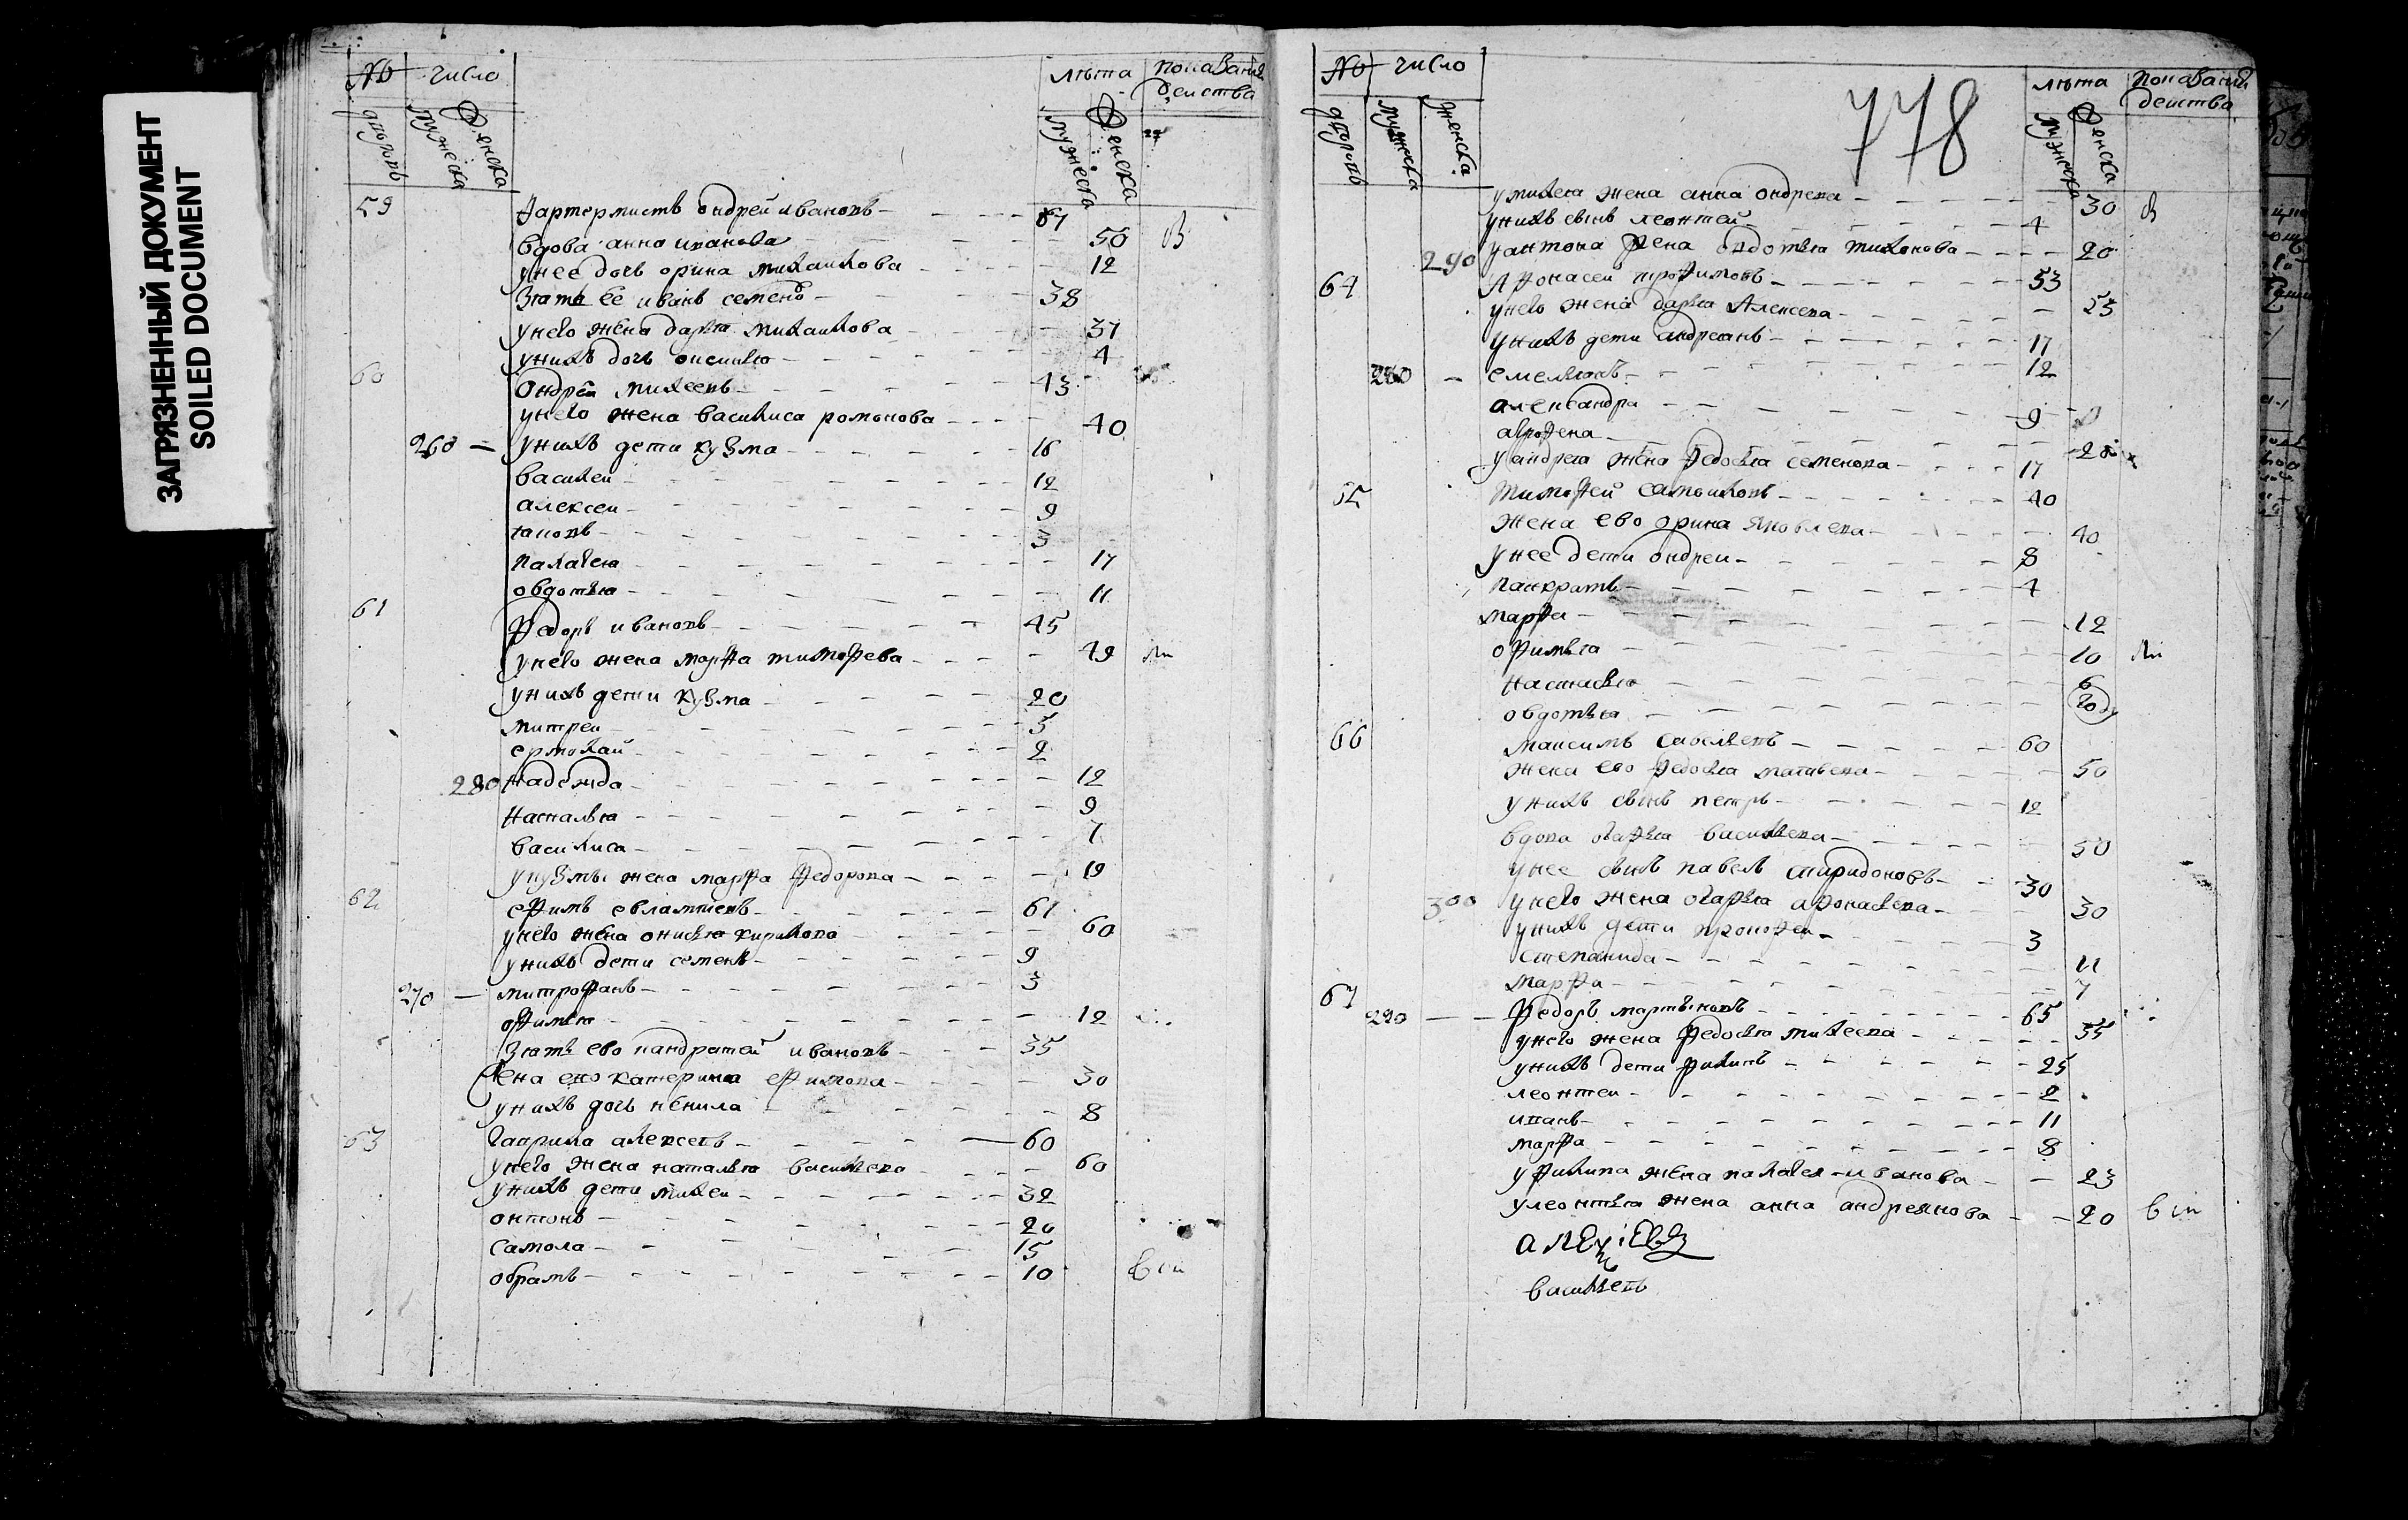 ЗАГРЯЗНЕННЫЙ ДОКУМЕНТ
SOILED DOCUMENT
№ число лѣта показание
действа
мужеска женска мужеска женска
59 андрей ивановъ 67
вдова анна иванова 50
у нее дочь орина михаилова 12
зять ее иванъ семено 38
у него жена дарья михаилова 37
у нихъ дочь 4
60 Ондрей михеевъ 43
у него жена василиса романова 40
260 у нихъ дети кузма 16
василеи 12
алексеи 9
3
палагея 17
овдотья 11
61 Федоръ ивановъ 45
у него жена марфа тимофеева 49
у нихъ дети кузма 20
митреи 5
ермолай 2
280 Надежда 12
Наталья 9
василиса 7
у кузмы жена марфа федорова 19
62 ефимъ евлампиевъ 61
у него жена онисья кирилова 60
у нихъ дети семенъ 9
270 митрофанъ 3
офимья 12
зять ево кандратей ивановъ 35
жена ево катерина ефимова 30
у нихъ дочь ненила 8
63 гаврила алексеевъ 60
у него жена наталья васильева 60
у нихъ дети михеи 32
онтонъ 20
самола 15
обрамъ 10
№ число 778 лѣта показание
действа
мужеска женска мужеска женска
у михея жена анна ондреева 30
у нихъ сынъ леонтей 4
290 у антона жена овдотья тихонова 20
64 Афонасеи трофимовъ 53
у него жена дарья Алексеева 53
у нихъ дети андреянъ 17
280 емельянъ 12
александра 9
у андрея жена федосья семенова
65 тимофей самоиловъ 40
жена ево орина яковлева 40
у нее дети ондреи 8
панкратъ 4
марфа 12
офимья 10
настасья 6
овдотья
66 максимъ савельевъ 60
жена ево федосья матвеева 50
у нихъ сынъ петръ 12
вдова агафья васильева 50
у нее сынъ павелъ спиридоновъ 30
300 у него жена агафья афонасьева 30
у нихъ дети прокофеи 3
степанида 11
марфа 7
67 290 Федоръ мартыновъ 65
у него жена федосья михеева 35
у нихъ дети филипъ 25
леонтеи 2
иванъ 11
марфа 8
у филипа жена палагея иванова 23
у леонтья жена анна андреянова 20
алексiевъ
васильевъ